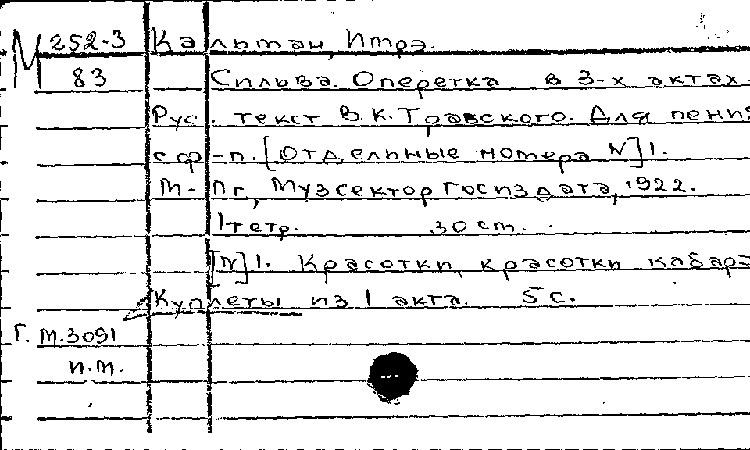 М 252-3 Кальман, Имрэ.
83 Сильва. Оперетка в 3-х актах.
Рус. текст В.К. Травского. Для пения
с ф-п. [Отдельные номера N] 1.
М-Пг, Музсектор Госиздата, 1922.
1 тетр. 30 cm.
[N] 1. Красотки, красотки кабарэ
Куплеты из 1 акта. 5 с.
Г. М.3091
п.т.